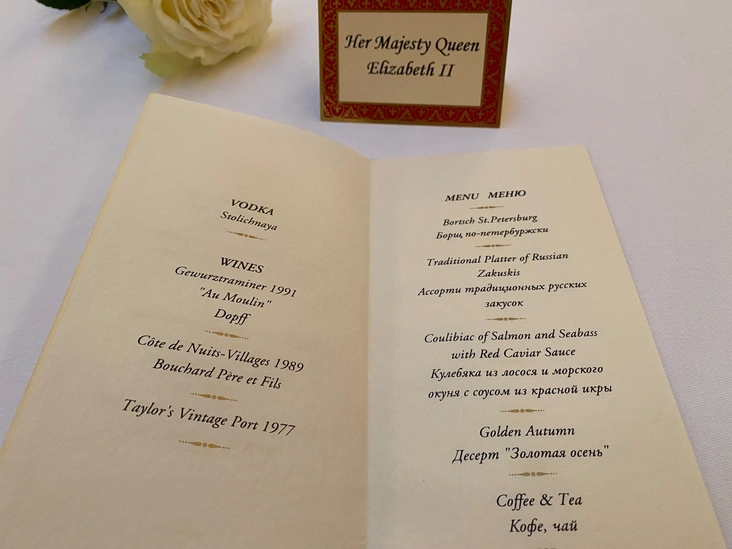 Her Majesty Queen
Elizabeth II
VODKA
Stolichnaya
WINES
Gewurztraminer 1991
"Au Moulin"
Dopff
Côte de Nuits-Villages 1989
Bouchard Père et Fils
Taylor's Vintage Port 1977
MENU МЕНЮ
Bortsch St.Petersburg
Борщ по-петербуржски
Traditional Platter of Russian
Zakuskis
Ассорти традиционных русских
закусок
Coulibiac of Salmon and Seabass
with Red Caviar Sauce
Кулебяка из лосося и морского
окуня с соусом из красной икры
Golden Autumn
Десерт "Золотая осень"
Coffee & Tea
Кофе, чай